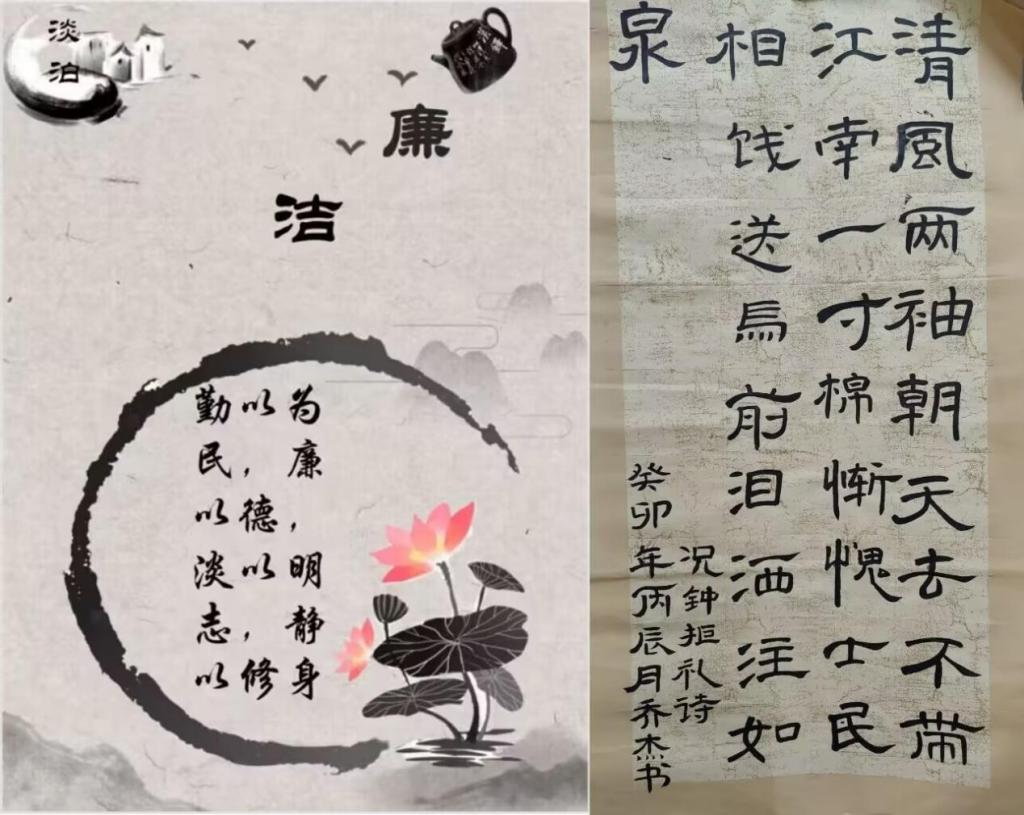 淡
泊
廉
洁
勤以为
民，廉
以德，
淡以明
志，静
以修身
清風两袖朝天去不带
江南一寸棉惭愧士民
相饯送馬前泪洒注如
泉
况鈡拒礼诗
癸卯年丙辰月乔杰书